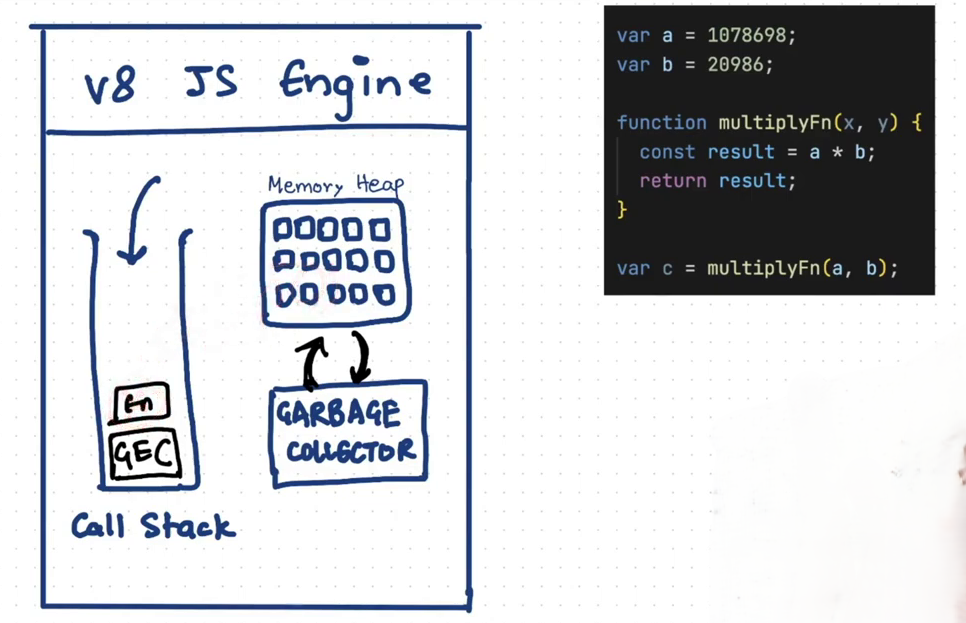 v8 JS Engine
Memory Heap
Fn
GEC
Call Stack
GARBAGE
COLLECTOR
var a = 1078698;
var b = 20986;
function multiplyFn(x, y) {
const result = a * b;
return result;
}
var c = multiplyFn(a, b);